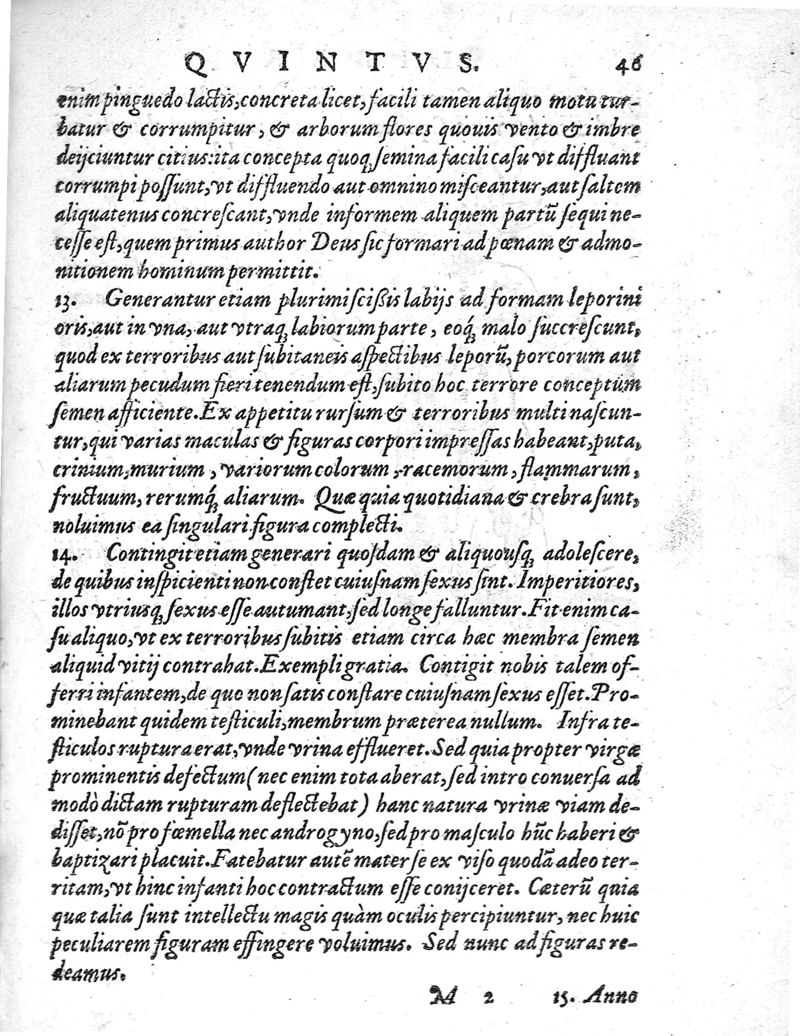 QVINTVS. 46
enim pinguedo lactis, concreta licet, facili tamen aliquo motu tur-
batur & corrumpitur, & arborum flores quouis vento & imbre
deijciuntur citius: ita concepta quoq; semina facili casu vt diffluant
corrumpi possunt, vt diffluendo aut omnino misceantur, aut saltem
aliquatenus concrescant, vnde informem aliquem partũ sequi ne-
cesse est, quem primus author Deus sic formari ad pœnam & admo-
nitionem hominum permittit.
13. Generantur etiam plurimi scißis labijs ad formam leporini
oris, aut in vna, aut vtraq; labiorum parte, eoq́; malo succrescunt,
quod ex terroribus aut subitaneis aspectibus leporũ, porcorum aut
aliarum pecudum fieri tenendum est, subito hoc terrore conceptum
semen afficiente. Ex appetitu rursum & terroribus multi nascun-
tur, qui varias maculas & figuras corpori impressas habeant, puta,
crinium, murium, variorum colorum, racemorum, flammarum,
fructuum, rerumq́; aliarum. Quæ quia quotidiana & crebra sunt,
noluimus ea singulari figura complecti.
14. Contingit etiam generari quosdam & aliquousq; adolescere,
de quibus inspicienti non constet cuiusnam sexus sint. Imperitiores,
illos vtriusq; sexus esse autumant, sed longe falluntur. Fit enim ca-
su aliquo, vt ex terroribus subitis etiam circa hæc membra semen
aliquid vitij contrahat. Exempli gratia. Contigit nobis talem of-
ferri infantem, de quo non satis constare cuiusnam sexus esset. Pro-
minebant quidem testiculi, membrum præterea nullum. Infra te-
sticulos ruptura erat, vnde vrina efflueret. Sed quia propter virgæ
prominentis defectum (nec enim tota aberat, sed intro conuersa ad
modò dictam rupturam deflectebat) hanc natura vrinæ viam de-
disset, nõ pro fœmella nec androgyno, sed pro masculo hũc haberi &
baptizari placuit. Fatebatur autẽ mater se ex viso quodã adeo ter-
ritam, vt hinc infanti hoc contractum esse conijceret. Cæterũ quia
quæ talia sunt intellectu magis quàm oculis percipiuntur, nec huic
peculiarem figuram effingere voluimus. Sed nunc ad figuras re-
deamus.
M 2 15. Anno